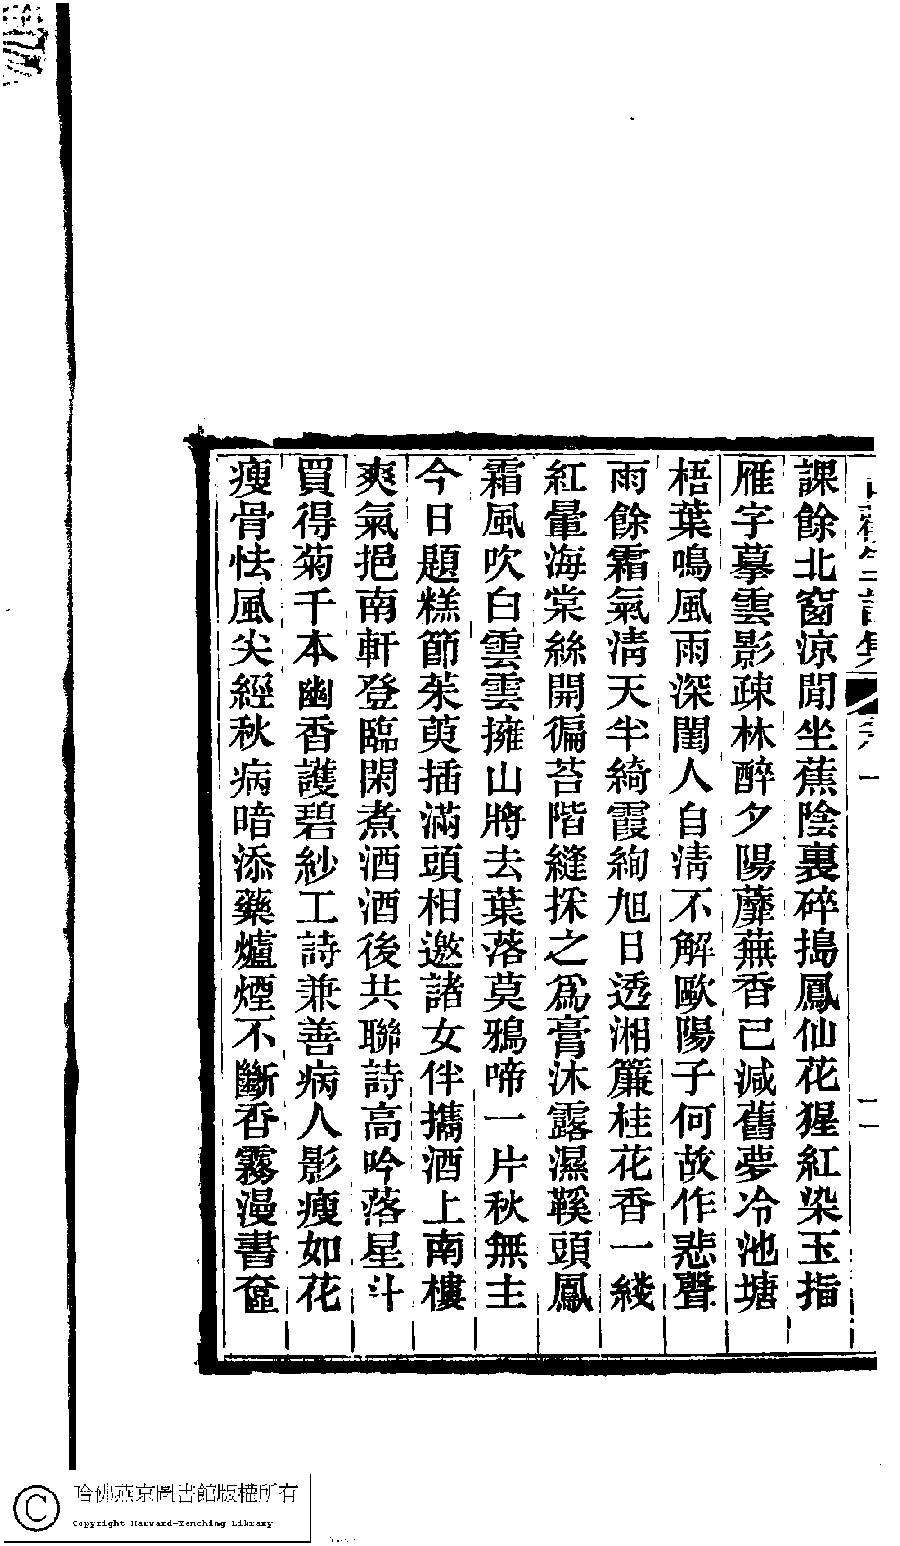 課餘北窗涼閒坐蕉陰裏碎搗鳳仙花猩紅染玉指
雁字摹雲影疎林醉夕陽蘼蕪香已減舊夢冷池塘
梧葉鳴風雨深閨人自淸不解歐陽子何故作悲聲
雨餘霜氣淸天半綺霞絢旭日透湘簾桂花香一綫
紅暈海棠絲開徧苔階縫採之爲膏沐露濕鞵頭鳳
霜風吹白雲雲擁山將去葉落莫鴉啼一片秋無主
今日題糕節茱萸插滿頭相邀諸女伴攜酒上南樓
爽氣挹南軒登臨閑煮酒酒後共聯詩高吟落星斗
買得菊千本幽香護碧紗工詩兼善病人影瘦如花
瘦骨怯風尖經秋病暗添藥爐煙不斷香霧漫書奩
哈佛燕京圖書館版權所有
Copyright Harvard-Yenching Library